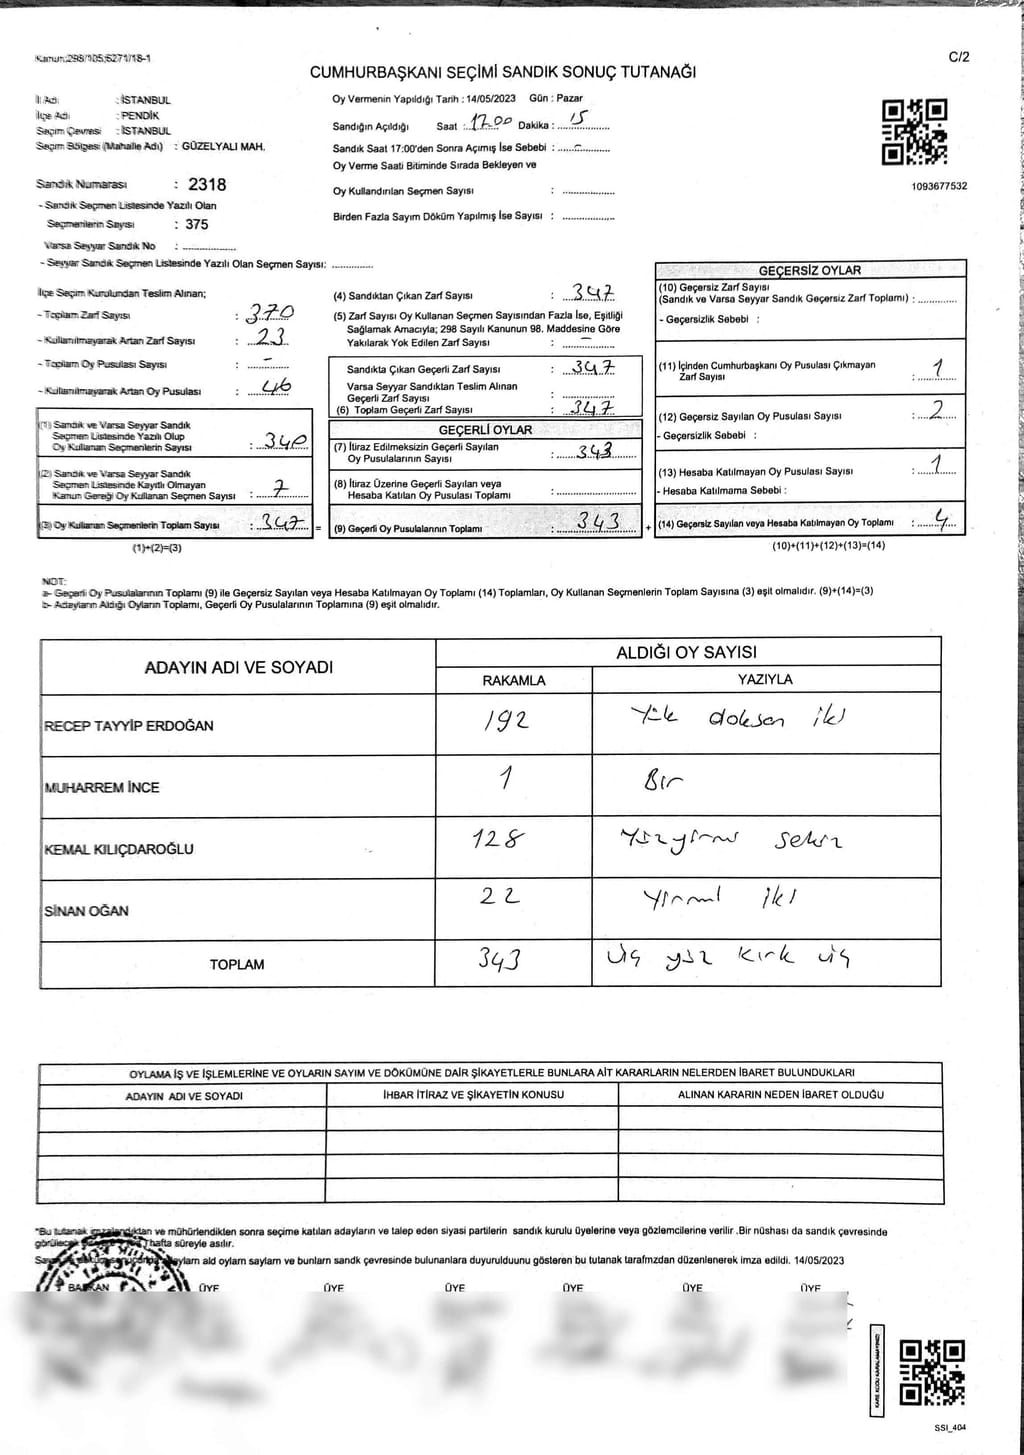 Kanun:298/105;6271/18-1
C/2
CUMHURBAŞKANI SEÇİMİ SANDIK SONUÇ TUTANAĞI
İl Adı : İSTANBUL
İlçe Adı : PENDİK
Seçim Çevresi : İSTANBUL
Seçim Bölgesi (Mahalle Adı) : GÜZELYALI MAH.
Sandık Numarası : 2318
- Sandık Seçmen Listesinde Yazılı Olan
Seçmenlerin Sayısı : 375
Varsa Seyyar Sandık No : ................
- Seyyar Sandık Seçmen Listesinde Yazılı Olan Seçmen Sayısı: ............
Oy Vermenin Yapıldığı Tarih : 14/05/2023 Gün : Pazar
Sandığın Açıldığı Saat : 17.00 Dakika : 15
Sandık Saat 17:00'den Sonra Açımış İse Sebebi : ..... - .........
Oy Verme Saati Bitiminde Sırada Bekleyen ve
Oy Kullandırılan Seçmen Sayısı : ................
Birden Fazla Sayım Döküm Yapılmış İse Sayısı : ................
1093677532
İlçe Seçim Kurulundan Teslim Alınan;
- Toplam Zarf Sayısı : 370
- Kullanılmayarak Artan Zarf Sayısı : 23
- Toplam Oy Pusulası Sayısı : -
- Kullanılmayarak Artan Oy Pusulası : 46
(1) Sandık ve Varsa Seyyar Sandık
Seçmen Listesinde Yazılı Olup
Oy Kullanan Seçmenlerin Sayısı : 340
(2) Sandık ve Varsa Seyyar Sandık
Seçmen Listesinde Kayıtlı Olmayan
Kanun Gereği Oy Kullanan Seçmen Sayısı : 7
(3) Oy Kullanan Seçmenlerin Toplam Sayısı : 347 =
(1)+(2)=(3)
(4) Sandıktan Çıkan Zarf Sayısı : 347
(5) Zarf Sayısı Oy Kullanan Seçmen Sayısından Fazla İse, Eşitliği
Sağlamak Amacıyla; 298 Sayılı Kanunun 98. Maddesine Göre
Yakılarak Yok Edilen Zarf Sayısı : -
Sandıkta Çıkan Geçerli Zarf Sayısı : 347
Varsa Seyyar Sandıktan Teslim Alınan
Geçerli Zarf Sayısı : ................
(6) Toplam Geçerli Zarf Sayısı : 347
GEÇERLİ OYLAR
(7) İtiraz Edilmeksizin Geçerli Sayılan
Oy Pusulalarının Sayısı : 343
(8) İtiraz Üzerine Geçerli Sayılan veya
Hesaba Katılan Oy Pusulası Toplamı : ................
(9) Geçerli Oy Pusulalarının Toplamı : 343 +
GEÇERSİZ OYLAR
(10) Geçersiz Zarf Sayısı
(Sandık ve Varsa Seyyar Sandık Geçersiz Zarf Toplamı) : ............
- Geçersizlik Sebebi :
(11) İçinden Cumhurbaşkanı Oy Pusulası Çıkmayan
Zarf Sayısı : 1
(12) Geçersiz Sayılan Oy Pusulası Sayısı : 2
- Geçersizlik Sebebi :
(13) Hesaba Katılmayan Oy Pusulası Sayısı : 1
- Hesaba Katılmama Sebebi :
(14) Geçersiz Sayılan veya Hesaba Katılmayan Oy Toplamı : 4
(10)+(11)+(12)+(13)=(14)
NOT:
a- Geçerli Oy Pusulalarının Toplamı (9) ile Geçersiz Sayılan veya Hesaba Katılmayan Oy Toplamı (14) Toplamları, Oy Kullanan Seçmenlerin Toplam Sayısına (3) eşit olmalıdır. (9)+(14)=(3)
b- Adayların Aldığı Oyların Toplamı, Geçerli Oy Pusulalarının Toplamına (9) eşit olmalıdır.
ADAYIN ADI VE SOYADI
ALDIĞI OY SAYISI
RAKAMLA YAZIYLA
RECEP TAYYİP ERDOĞAN 192 Yüz doksan iki
MUHARREM İNCE 1 Bir
KEMAL KILIÇDAROĞLU 128 Yüzyirmi sekiz
SİNAN OĞAN 22 Yirmi iki
TOPLAM 343 üç yüz kırk üç
OYLAMA İŞ VE İŞLEMLERİNE VE OYLARIN SAYIM VE DÖKÜMÜNE DAİR ŞİKAYETLERLE BUNLARA AİT KARARLARIN NELERDEN İBARET BULUNDUKLARI
ADAYIN ADI VE SOYADI İHBAR İTİRAZ VE ŞİKAYETİN KONUSU ALINAN KARARIN NEDEN İBARET OLDUĞU
"Bu tutanak imzalandıktan ve mühürlendikten sonra seçime katılan adayların ve talep eden siyasi partilerin sandık kurulu üyelerine veya gözlemcilerine verilir .Bir nüshası da sandık çevresinde
görülecek hafta süreyle asılır.
ald oylam saylam ve bunlarn sandk çevresinde bulunanlara duyurulduunu gösteren bu tutanak tarafmzdan düzenlenerek imza edildi. 14/05/2023
BAŞKAN ÜYE ÜYE ÜYE ÜYE ÜYE ÜYE
KARE KODU KARALAMAYINIZ!
SSI_404